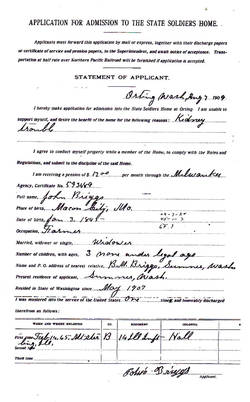 APPLICATION FOR ADMISSION TO THE STATE SOLDIERS HOME.
Applicants must forward this application by mail or express, together with their discharge papers
or certificate of service and pension papers, to the Superintendent, and await notice of acceptance. Trans-
portation at half rate over Northern Pacific Railroad will be furnished if application is accepted.
STATEMENT OF APPLICANT.
Orting Wash, Aug 7 1909
I hereby make application for admission into the State Soldiers Home at Orting. I am unable to
support myself, and desire the benefit of the home for the following reasons: Kidney
trouble
I agree to conduct myself properly while a member of the Home, to comply with the Rules and
Regulations, and submit to the discipline of the said Home.
I am receiving a pension of $ 12.00 per month through the Milwaukee
Agency, Certificate No. 593449
Full name, John Briggs
Place of birth, Macon City, Mo.
Date of birth, Jan. 3, 1845
Occupation, Farmer
Married, widower or single, Widower
Number of children, with ages, 3 none under legal age
Name and P. O. address of nearest relative, B.M. Briggs, Sumner, Wash
Present residence of applicant, Sumner, Wash.
Resided in State of Washington since May 1907
I was mustered into the service of the United States, One times, and honorably discharged
therefrom as follows:
WHEN AND WHERE ENLISTED CO. REGIMENT COLONEL
First time Feb. 14. 65. B 14 Ill Inft Hall
Second time
Third time
John Briggs
Applicant.